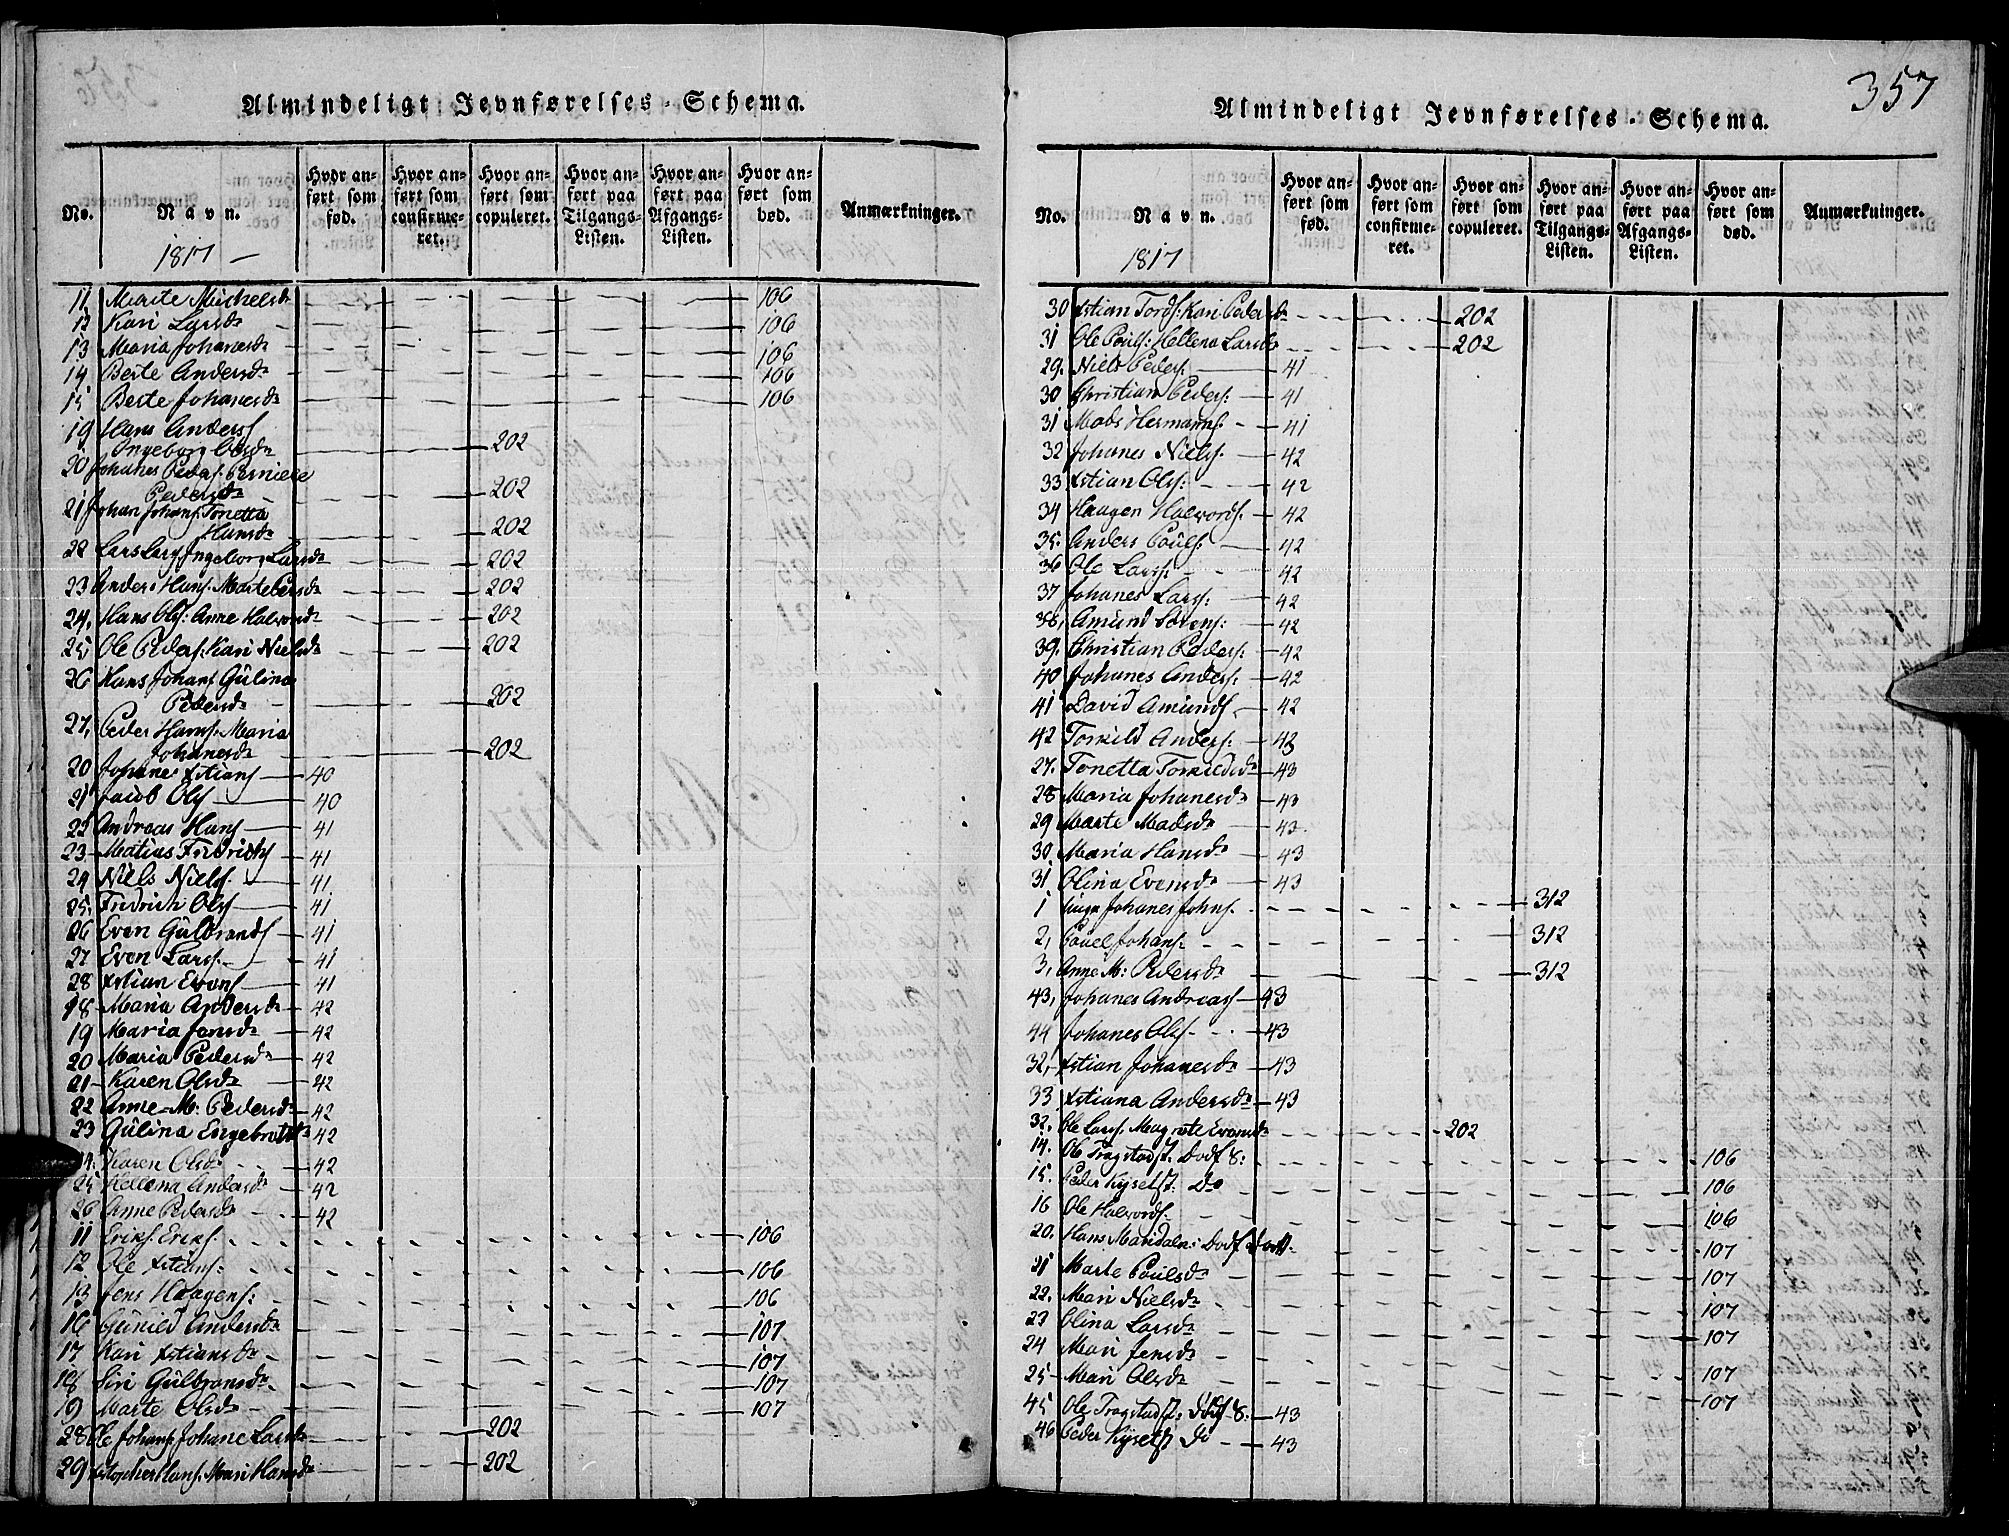 Almindeligt Jevnførelses-Schema.
No. Navn. Hvor anført som fød. Hvor anført som confirmeret. Hvor anført som copuleret. Hvor anført paa Tilgangs-Listen. Hvor anført paa Afgangs-Listen. Hvor anført som død. Anmærkninger.
1817 —
11 Marte Michelsdr 106
12 Kari Larsdr 106
13 Maria Johanesdr 106
14 Berte Andersdr 106
15 Berte Johanesdr 106
19 Hans Anders
Ingeborg Olesdr 202
20 Johanes Peders: Perniele
Pedersdr 202
21 Johan Johans: Tonetta
Hansdr 202
22 Lars Lars, Ingeborg Larsdr 202
23 Anders Hans: Marte Persdr 202
24, Hans Ols: Anne Halvorsdr 202
25 Ole Peders: Kari Nielsdr 202
26 Hans Johans Gulina
Pedersdr 202
27, Peder Hans: Maria
Johanesdr 202
20 Johanes Xstians 40
21 Jacob Ols 40
22 Andreas Hans 41
23 Matias Fridrichs 41
24 Niels Niels 41
25, Fredrich Ols 41
26 Even Gulbrands 41
27 Even Lars 41
28 Xstian Evens 41
18 Maria Andersdr 42
19 Maria Jensdr 42
20 Maria Pedersdr 42
21 Karen Olsdr 42
22 Anne M: Pedersdr 42
23 Gulina Engebretsdr 42
24. Karen Olsdr 42
25 Hellena Andersdr 42
26 Anne Pedersdr 42
11 Eriks Eriks: 106
12 Ole Xstians: 106
13 Jens Haagens: 106
16 Gunild Andersdr 107
17 Kari Xstiansdr 107
18 Siri Gulbransdr 107
19 Marte Olsdr 107
28 Ole Johans, Johane Larsdr 202
29 Xstopher Hans. Mari Hansdr 202
357
Almindeligt Jevnførelses-Schema.
No. Navn. Hvor anført som fød. Hvor anført som confirmeret. Hvor anført som copuleret. Hvor anført paa Tilgangs-Listen. Hvor anført paa Afgangs-Listen. Hvor anført som død. Anmærkninger.
1817
30 Xstian Tords: Kari Pedersdr 202
31 Ole Pouls: Hellena Larsdr 202
29. Niels Peders: 41
30 Christian Peders: 41
31 Mads Hermanns: 41
32 Johanes Niels: 42
33 Xstian Ols: 42
34 Haagen Halvords. 42
35. Anders Pouls: 42
36 Ole Lars: 42
37 Johanes Lars: 42
38, Amund Sørens: 42
39. Christian Peders: 42
40 Johanes Anders: 42
41 David Amunds 42
42 Torkild Anders: 43
27. Tonetta Torkildsdr 43
28 Maria Johanesdr 43
29 Marte Madsdr 43.
30 Maria Hansdr 43
31 Olina Evensdr 43
1 Johanes Johns. 312
2, Pouel Johans: 312
3, Anne M: Pedersdr 312
43, Johanes Andreas 43
44 Johanes Ols 43
32, Xstian Johanesdr 43
33 Xstiana Andersdr 43
32. Ole Lars. Magrete Evensdr 202
14. Ole Trogstadst. Dodf 8: 106
15. Peder Kyselst: Do 106
16 Ole Halvords: 106
20. Hans Maridaln: Dodf 107
21 Marte Poulsdr 107
22. Mari Nielsdr 107
23 Olina Larsdr 107
24 Mari Jensdr 107
25 Mari Olsdr 107
45 Ole Trogstadst: Dodf 8: 43
46 Peder Kyselst Do 43